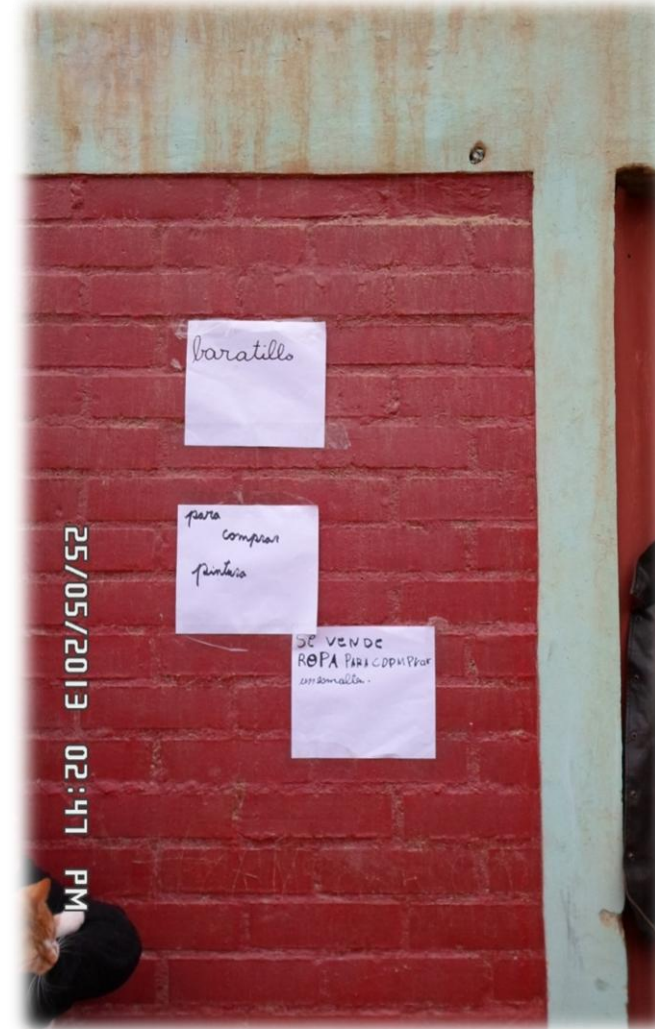 baratillo
para
comprar
pintura
SE VENDE
ROPA PARA COOMPRAR
25/05/2013 02:47 PM